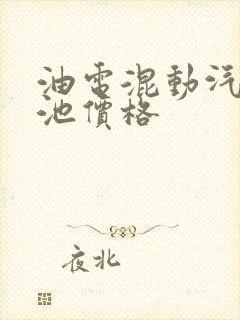 油電混動汽
池價格
夜北